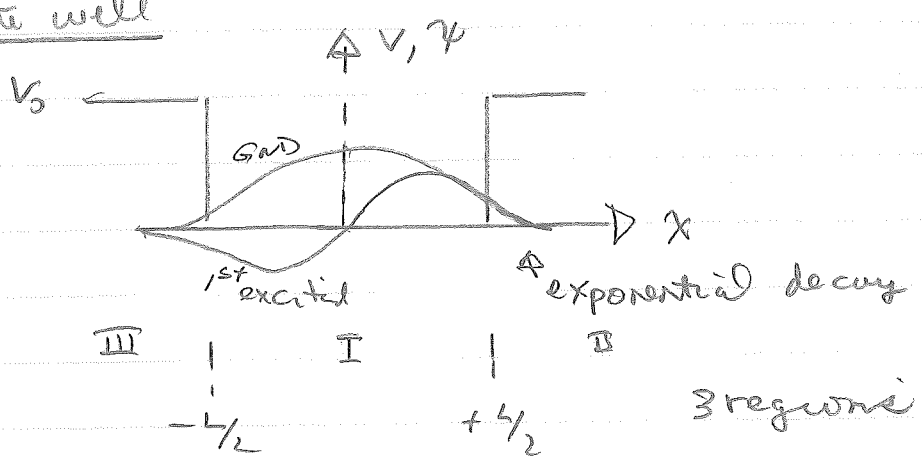 te well
V, ψ
V₀
GND
x
1st excited
exponential decay
III I II
-L/2 +L/2 3 regions